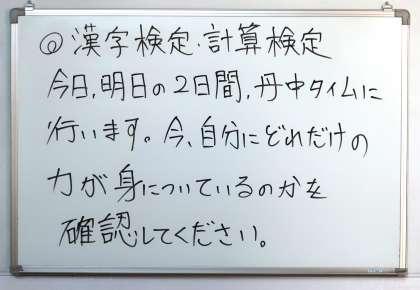 ◎漢字検定・計算検定
今日,明日の2日間,丹中タイムに
行います。今、自分にどれだけの
力が身についているのかを
確認してください。